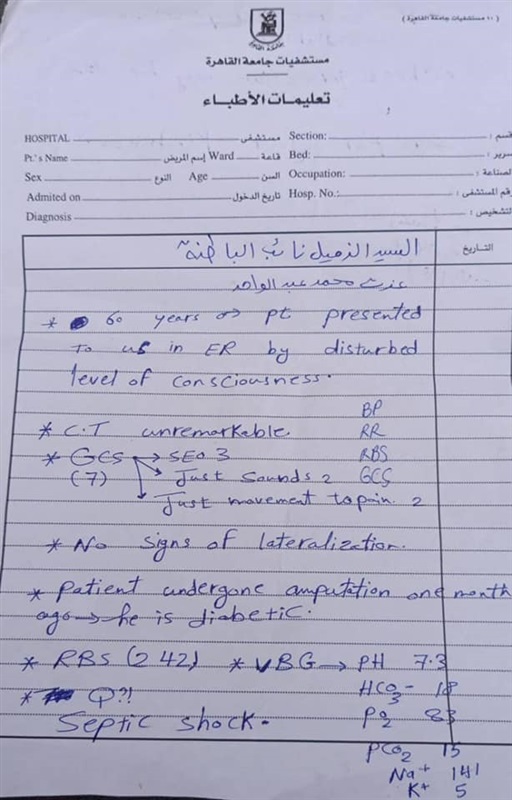 ( ١٠ مستشفيات جامعة القاهرة )
مستشفيات جامعة القاهرة
تعليمات الأطباء
HOSPITAL مستشفى Section: قسم :
Pt.'s Name إسم المريض Ward قاعة Bed: سرير :
Sex النوع Age السن Occupation: الصناعة :
Admited on تاريخ الدخول Hosp. No.: رقم المستشفى :
Diagnosis التشخيص :
التاريخ
السيد الزميل نائب الباطنة
عزت محمد عبد الواحد
* 60 years pt presented
To us in ER by disturbed
level of consciousness.
BP
* C.T unremarkable RR
* GCS → SEO 3 RBS
(7) Just sounds 2 GCS
Just movement to pain 2
* No signs of lateralization.
* Patient undergone amputation one month
ago → he is diabetic.
* RBS (242) * VBG → PH 7.3
HCO3- 18
* Q?!
Septic shock. PO2 83
PCO2 15
Na+ 141
K+ 5